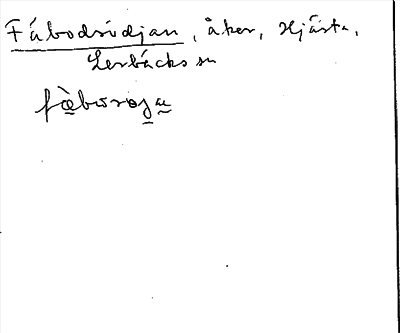 Fäbodrödjan, åker, Hjärsta,
Lerbäcks sn
fàbωroja